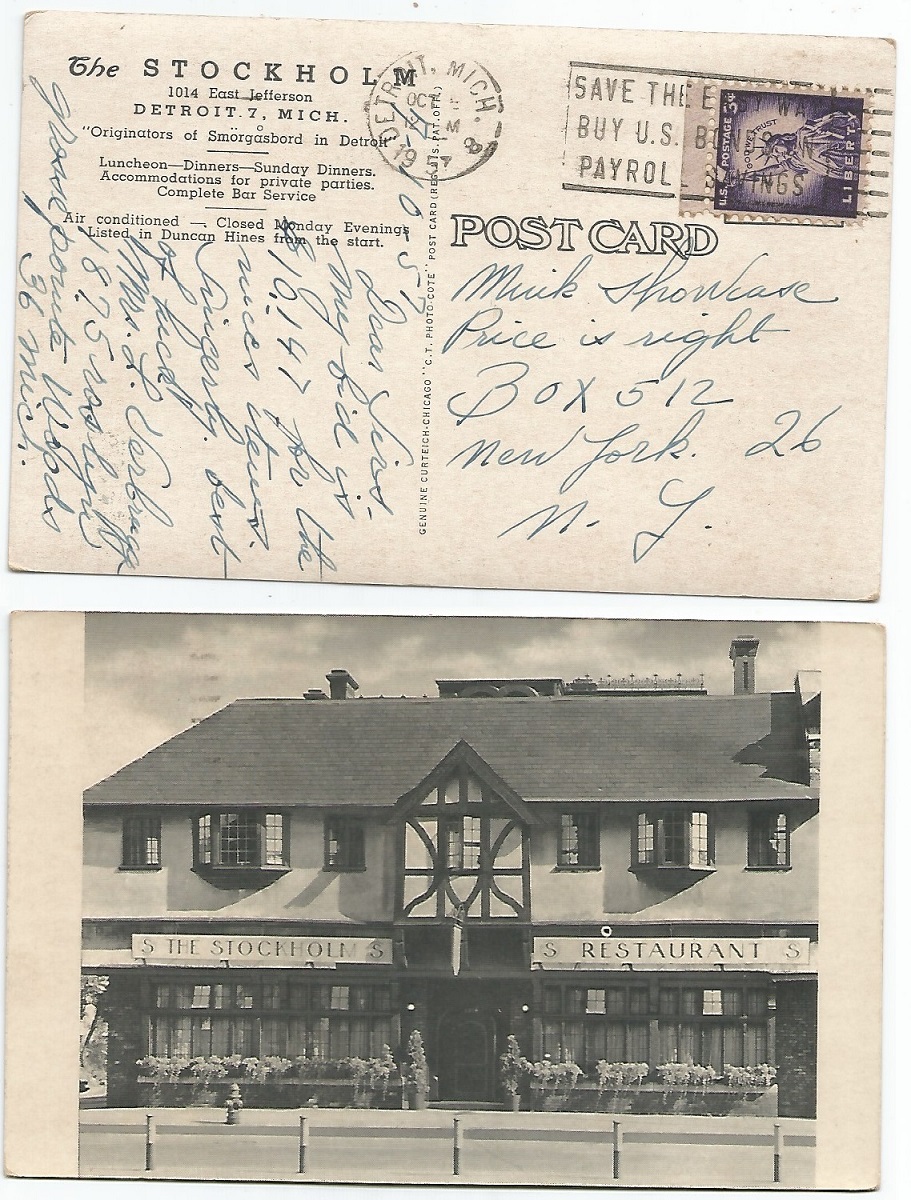 The STOCKHOLM
1014 East Jefferson
DETROIT 7, MICH.
"Originators of Smörgasbord in Detroit"
Luncheon—Dinners—Sunday Dinners.
Accommodations for private parties.
Complete Bar Service
Air conditioned — Closed Monday Evenings
Listed in Duncan Hines from the start.
DETROIT, MICH.
OCT
M
1957
8
SAVE THE
BUY U.S. BONDS
PAYROLL SAVINGS
U.S. POSTAGE 3¢
IN GOD WE TRUST
LIBERTY
POST CARD
GENUINE CURTEICH-CHICAGO "C.T. PHOTO-COTE" POST CARD (REG. U.S. PAT. OFF.)
10-5-57
Dear Sirs.
My bid is
$10,147 for the
nices items.
Sincerly. best
of luck
Mrs. L
1875
Grosse pointe Woods
36 Mich.
Mink Showcase
Price is right
BOX 512
New York. 26
N. Y.
S THE STOCKHOLM S
S RESTAURANT S